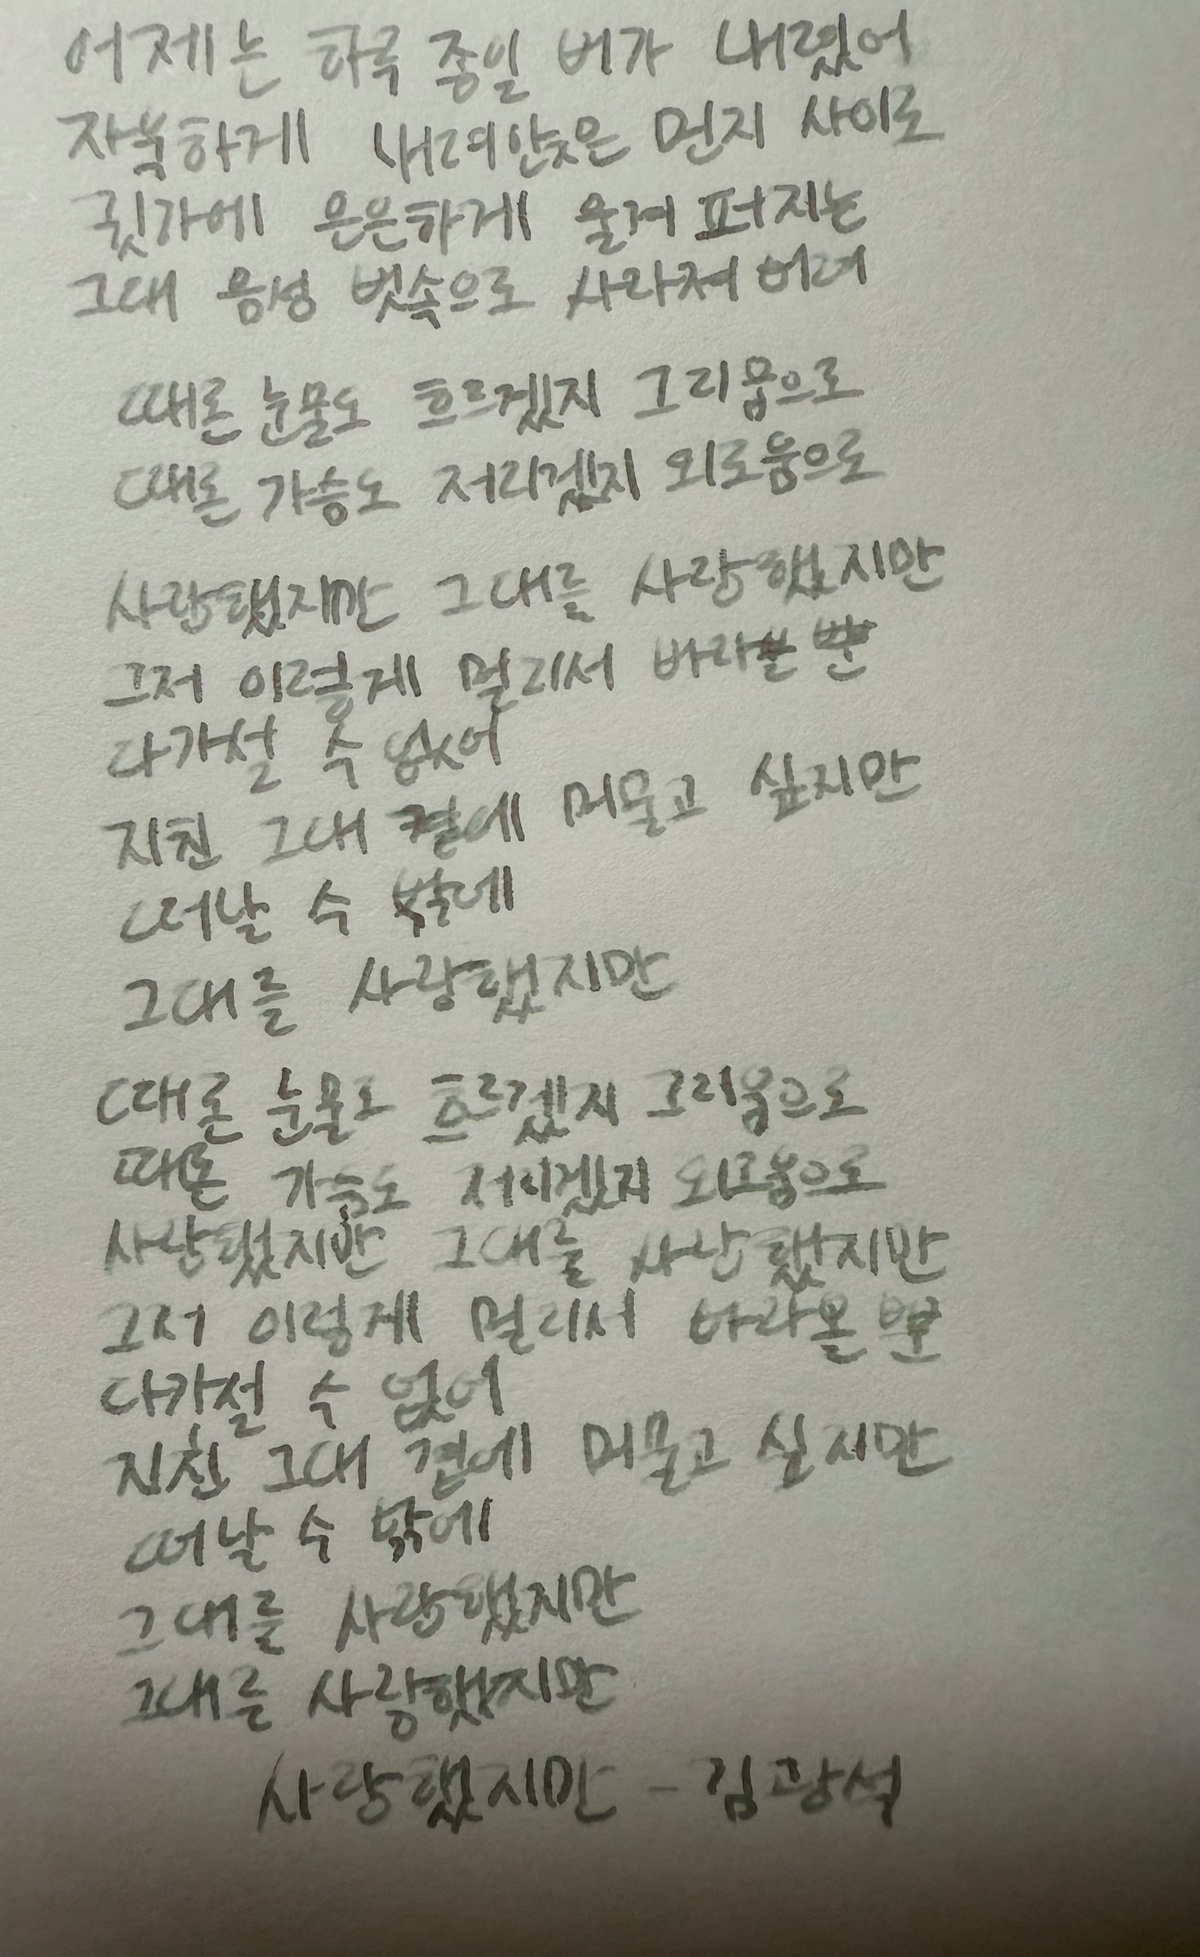 어제는 하루 종일 비가 내렸어
자욱하게 내려앉은 먼지 사이로
귓가에 은은하게 울려 퍼지는
그대 음성 빗속으로 사라져 버려
때론 눈물도 흐르겠지 그리움으로
때론 가슴도 저리겠지 외로움으로
사랑했지만 그대를 사랑했지만
그저 이렇게 멀리서 바라볼 뿐
다가설 수 없어
지친 그대 곁에 머물고 싶지만
떠날 수 밖에
그대를 사랑했지만
때론 눈물도 흐르겠지 그리움으로
때론 가슴도 저리겠지 외로움으로
사랑했지만 그대를 사랑했지만
그저 이렇게 멀리서 바라볼 뿐
다가설 수 없어
지친 그대 곁에 머물고 싶지만
떠날 수 밖에
그대를 사랑했지만
그대를 사랑했지만
사랑했지만 - 김광석